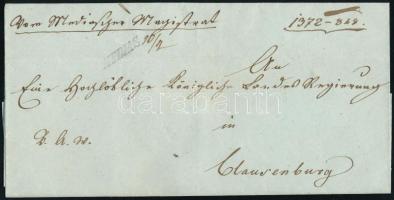 Vom Mediascher Magistrat 1372 - 848.
MEDIAS. 16/2
An
Eine Hochlöbliche Königliche Landes Regierung
in
Clausenburg